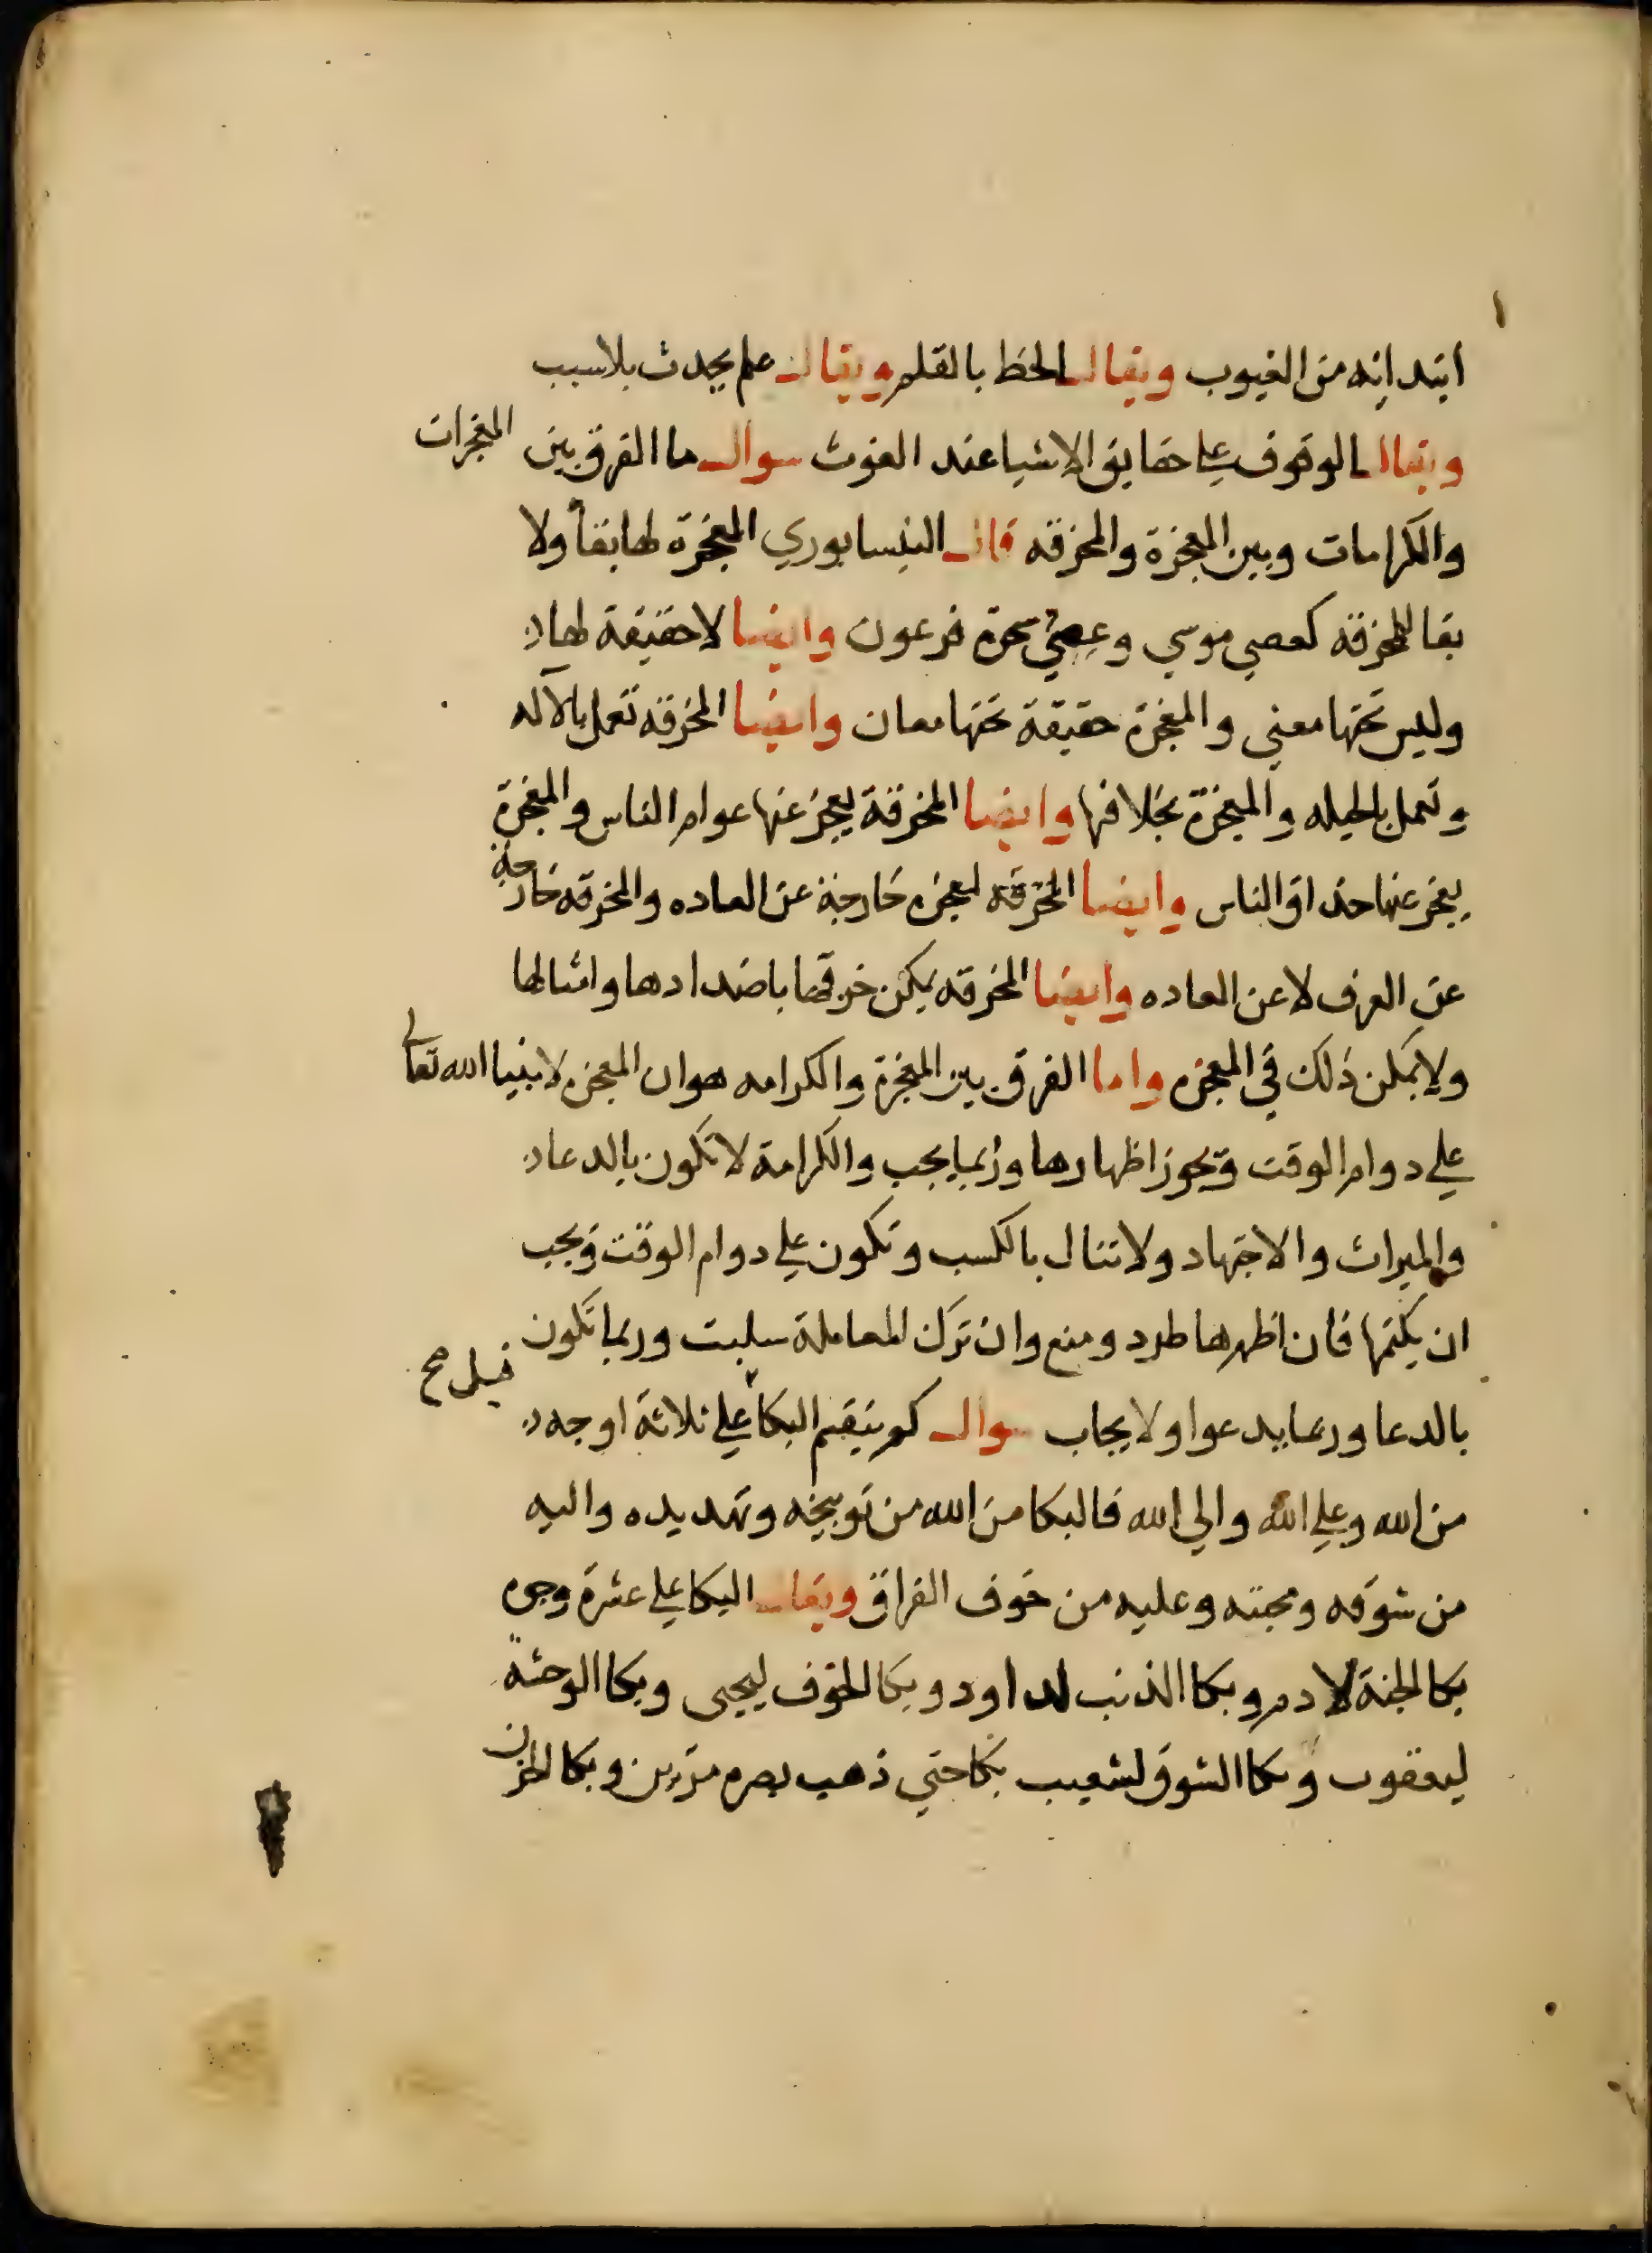 ابتدائه من الغيوب ويقال الحظ بالقلم ويقال علم يحدث بلاسبب
ويقال الوقوف علي حقايق الاشيا عند الغوث سوال ما الفرق بين المعجزات
والكرامات وبين المعجزة والمخرقه قال النيسابوري المعجزة لها بقاً ولا
بقا للمخرقة كعصي موسي وعصي سحرة فرعون وايضا لا حقيقة لها
وليس تحتها معني والمعجزة حقيقة تحتها معان وايضا المخرقه تعمل بالآله
وتعمل بالحيله والمعجزة بخلافها وايضا المخرقة يعجز عنها عوام الناس والمعجزة
يعجز عنها حذاق الناس وايضا المخرقه المعجزه خارجة عن العاده والمخرقه خارجة
عن العرف لا عن العاده وايضا المخرقه يمكن خرقها باضدادها وامثالها
ولا يمكن ذلك في المعجزه واما الفرق بين المعجزة والكرامه هو ان المعجزه لانبيا الله تعالي
علي دوام الوقت ويجوز اظهارها وربما يجب والكرامة لا تكون بالدعا
والميراث والاجتهاد ولا تنال بالكسب وتكون علي دوام الوقت ويجب
ان يكتمها فان اظهرها طرد ومنع وان ترك المعاملة سلبت وربما تكون
بالدعا وربما يدعوا ولا يجاب سوال كم ينقسم البكا علي ثلاثة اوجه
قيل صح
من الله وعلي الله والي الله فالبكا من الله من توبيخه وتهديده واليه
من شوقه ومحبته وعليه من خوف الفراق ويقال البكا علي عشرة وجوه
بكا الجنة لادم وبكا الذنب لداود وبكا الخوف ليحيي وبكا الوحشة
ليعقوب وبكا الشوق لشعيب بكا حتي ذهب بصره مرتين وبكا الحزن